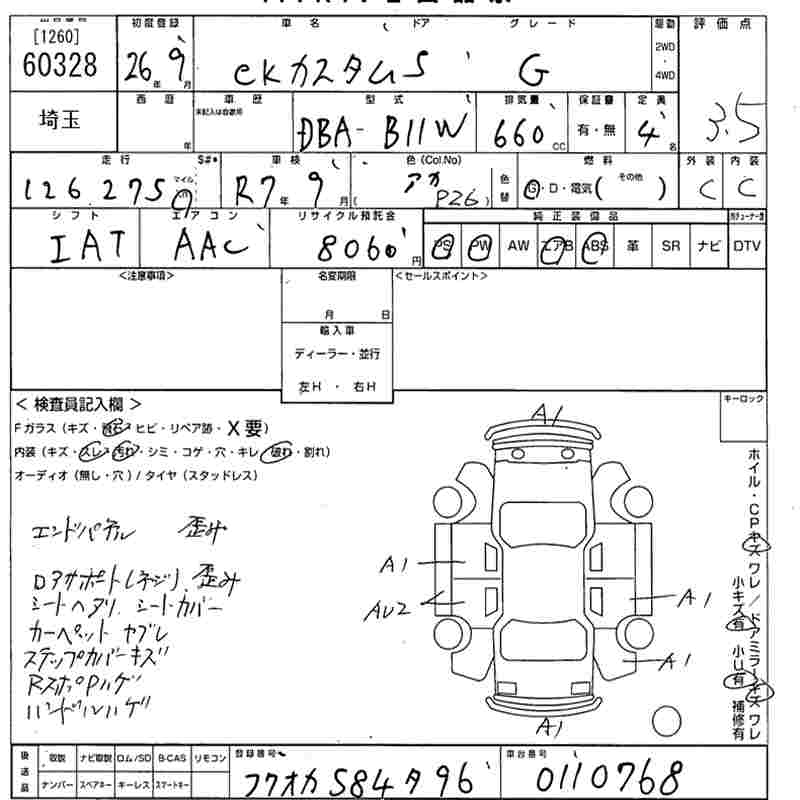 [1260]
60328
初度登録
26年 9月
車名 ドア グレード
eKカスタムS G
駆動
2WD
・
4WD
評価点
3.5
埼玉
西暦
年
車歴
未記入は自家用
型式
DBA- B11W
排気量
660 CC
保証書
有・無
定員
4名
走行 S#*
126,275 マイル Km
車検
R7年 9月
色(Col.No)
アカ
( P26 )
色替
燃料
G・D・電気( その他 )
外装 内装
C C
シフト
IAT
エアコン
AAC
リサイクル預託金
8060円
純正装備品
PS PW AW エアB ABS 革 SR ナビ DTV
<注意事項>
名変期限
月 日
輸入車
ディーラー・並行
左H ・ 右H
<セールスポイント>
< 検査員記入欄 >
Fガラス(キズ・飛石・ヒビ・リペア跡・X要)
内装(キズ・スレ・汚れ・シミ・コゲ・穴・キレ・破れ・割れ)
オーディオ(無し・穴)/タイヤ(スタッドレス)
キーロック
エンドパネル 歪み
ロアサポート(ネジ)、歪み
シートヘタリ、シートカバー
カーペット ヤブレ
ステップカバーキズ
RスポPハゲ
ハンドルハゲ
A1
A1
AU2
A1
A1
A1
ホイル・CPキズ ワレ/ドアミラーキズワレ
小キズ有 小U有 補修有
後送品
取説 ナビ取説 ロム/SD B-CAS リモコン
ナンバー スペアキー キーレス スマートキー
登録番号
フクオカ S84 タ 96
車台番号
0110768